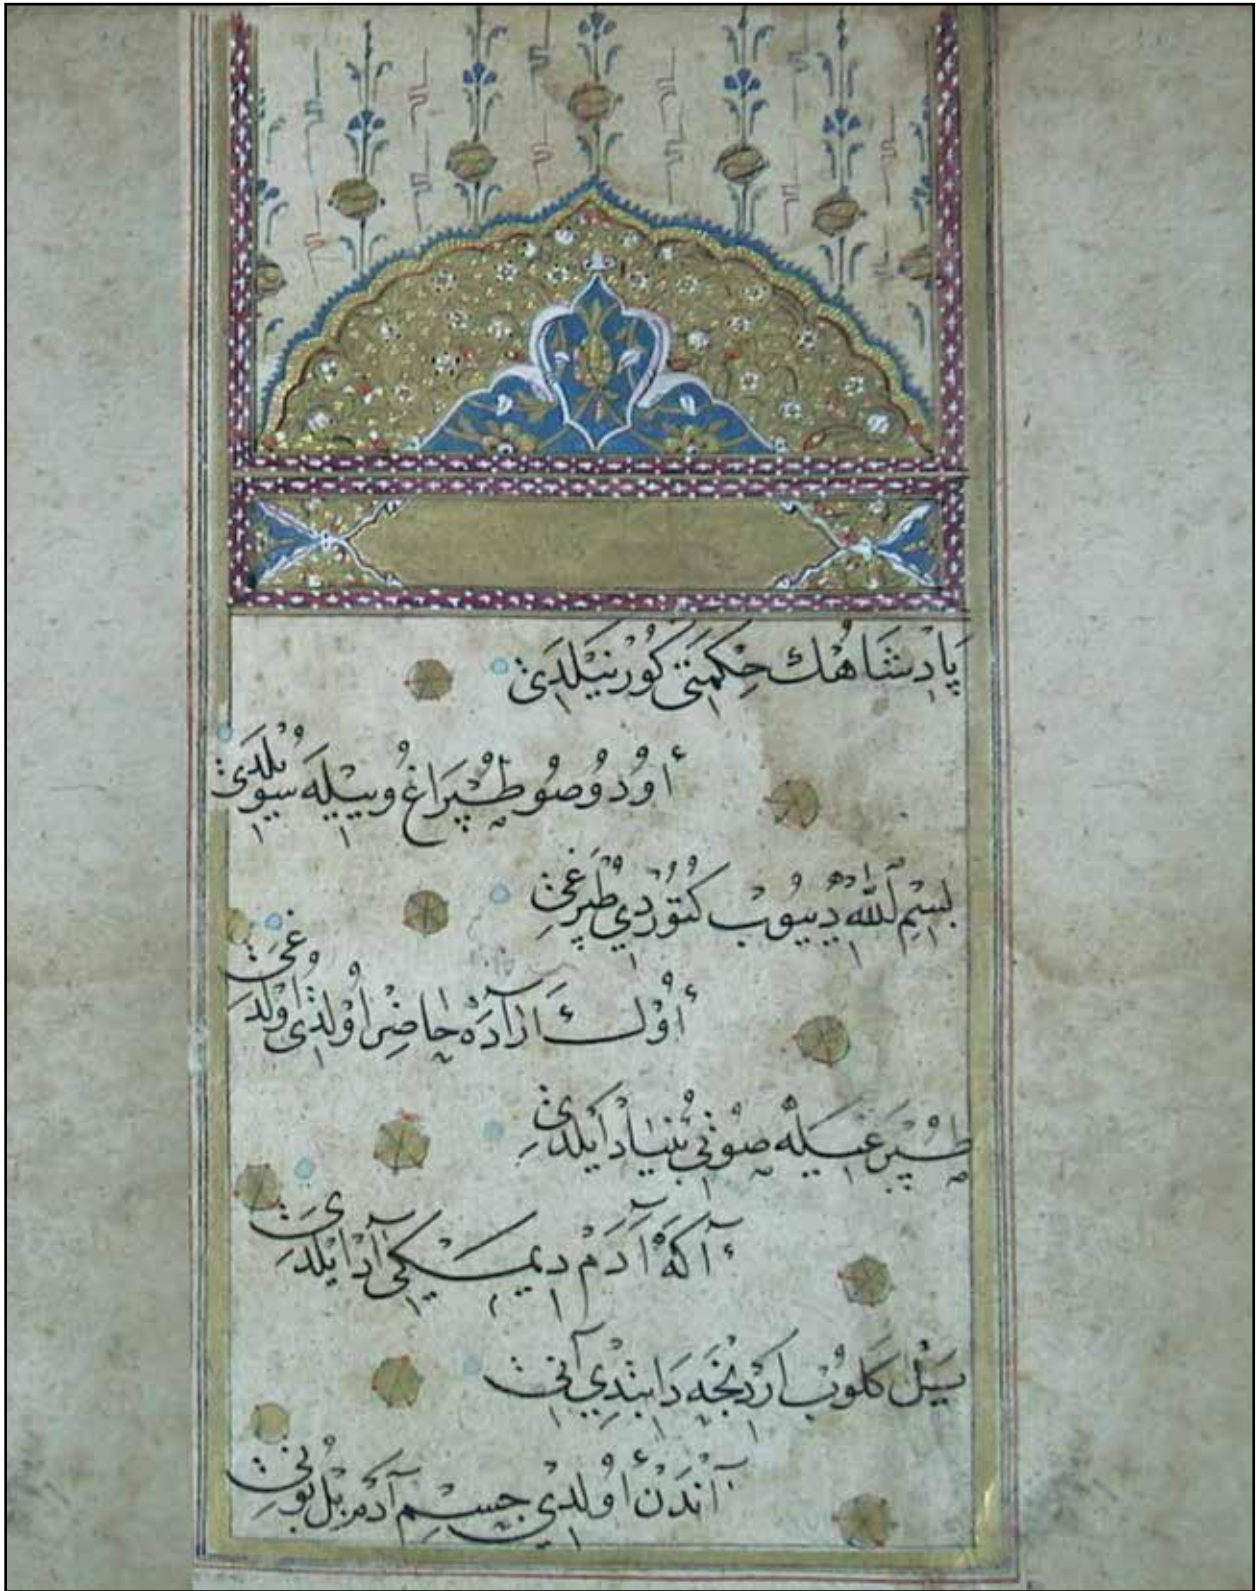 پَادِشَاهُڭ حِكْمَتِى كُورْ نَيْلَدِى
اُودُ وُ صُو طُپْرَاغُ وييلَه سُويْلَدِى
بِسْمِ لّٰله دِييُوبْ كَتُورْدِي طُپْرَغِى
اُولْ آرَادَه حَاضِرْ اُولْدِى اُولْدَغِى
طُپْرَغِيلَه صُويِى بُنْيَادْ اَيلَدِى
آكَه آدَمْ دِيمَكِى آدْ ايلَدِى
يَيْل كَلُوبْ اَرْدِنْجَه دَبِتْدِي آنِى
آنْدَنْ اُولْدِي جِسْمِ آدَمْ بِلْ بُونِى